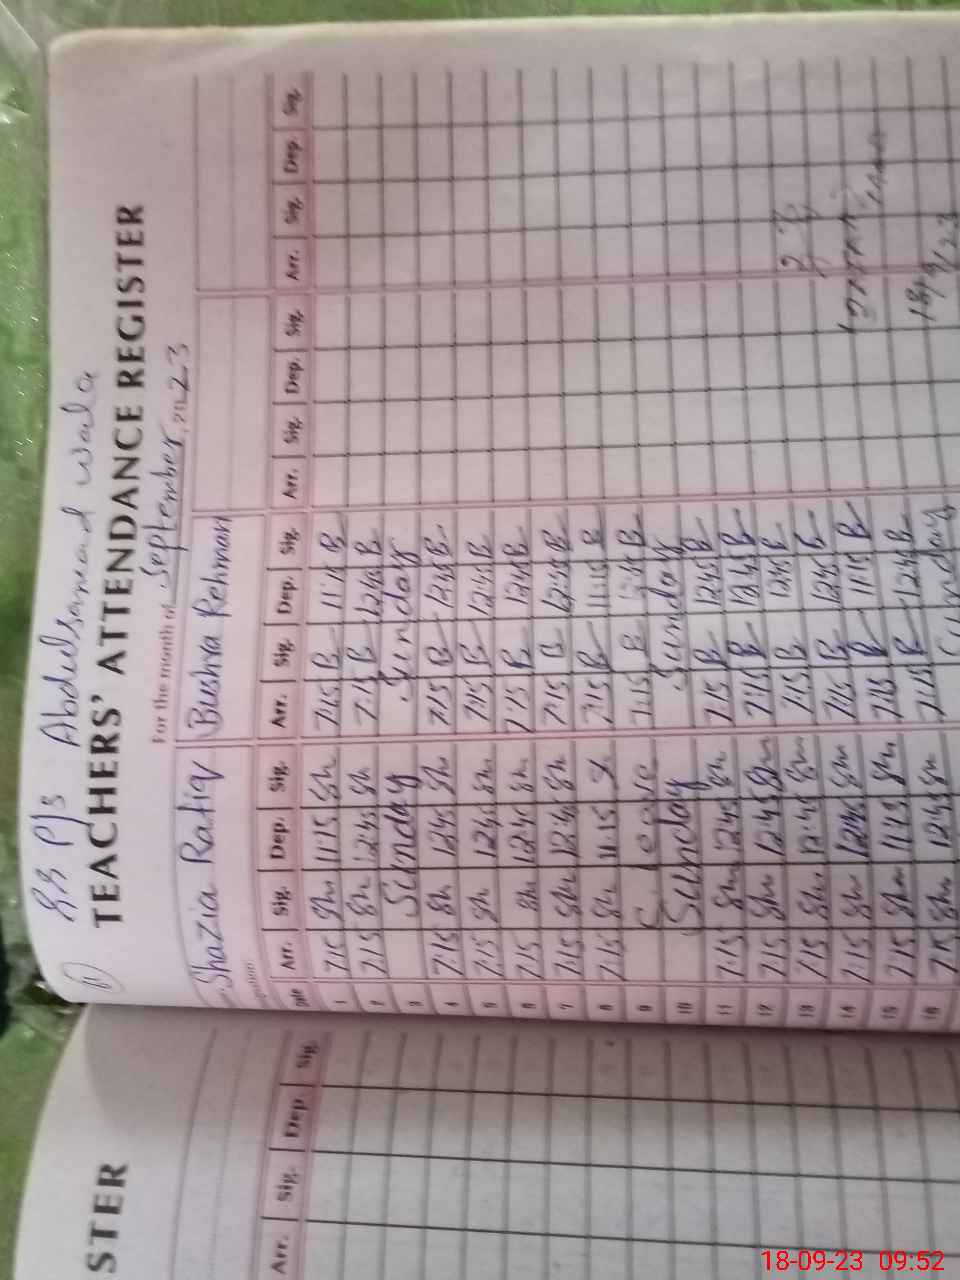 GG PJs Abdulsamad wala
TEACHERS' ATTENDANCE REGISTER
For the month of September, 2023
Shazia Rafiq Bushra Rehman
Date Arr. Sig. Dep. Sig. Arr. Sig. Dep. Sig. Arr. Sig. Dep. Sig. Arr. Sig. Dep. Sig.
1 7:15 Sh 11:15 Sh 7:15 B 11:15 B
2 7:15 Sh 12:45 Sh 7:15 B 12:45 B
3 Sunday Sunday
4 7:15 Sh 12:45 Sh 7:15 B 12:45 B
5 7:15 Sh 12:45 Sh 7:15 B 12:45 B
6 7:15 Sh 12:45 Sh 7:15 B 12:45 B
7 7:15 Sh 12:45 Sh 7:15 B 12:45 B
8 7:15 Sh 11:15 Sh 7:15 B 11:15 B
9 leave 7:15 B 12:45 B
10 Sunday Sunday
11 7:15 Sh 12:45 Sh 7:15 B 12:45 B
12 7:15 Sh 12:45 Sh 7:15 B 12:45 B
13 7:15 Sh 12:45 Sh 7:15 B 12:45 B
14 7:15 Sh 12:45 Sh 7:15 B 12:45 B
15 7:15 Sh 11:15 Sh 7:15 B 11:15 B
16 7:15 Sh 12:45 Sh 7:15 B 12:45 B
Sunday
18/9/23
STER
Arr. Sig. Dep. Sig.
18-09-23 09:52